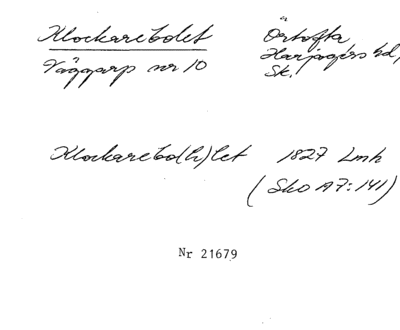 Klockarebolet Örtofta
Väggarp nr 10 Harjagers hd,
Sk.
Klockarebo(h)let 1827 Lmh
(Sko A7:141)
Nr 21679